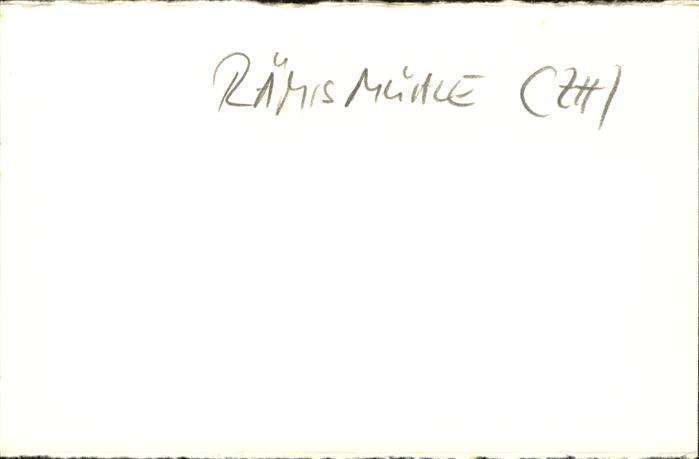 RÄMISMÜHLE (ZH)